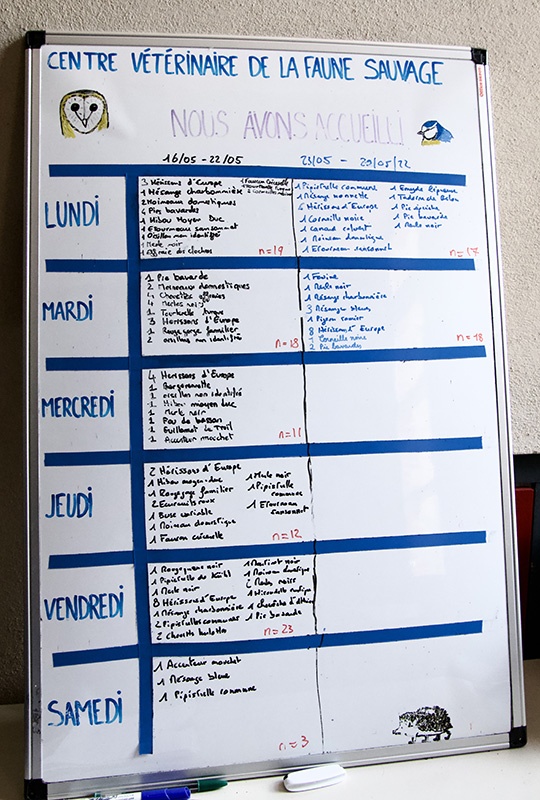 CENTRE VÉTÉRINAIRE DE LA FAUNE SAUVAGE
NOUS AVONS ACCUEILLI
16/05 - 22/05
23/05 - 29/05/22
LUNDI
3 Hérissons d'Europe
1 Mésange charbonnière
2 Moineaux domestiques
4 Pies bavardes
1 Hibou Moyen Duc
1 Etourneau sansonnet
1 Oisillon non identifié
1 Merle noir
1 Effraie des clochers
1 Faucon crécerelle
n=19
1 Pipistrelle commune
1 Mésange nonnette
6 Hérissons d'Europe
1 Corneille noire
1 Canard colvert
1 Moineau domestique
1 Etourneau sansonnet
1 Emyde lépreuse
1 Tadorne de Belon
1 Pie épeiche
1 Pie bavarde
1 Merle noir
n=17
MARDI
1 Pie bavarde
2 Moineaux domestiques
4 Chevettes effraies
4 Merles noirs
1 Tourterelle turque
3 Herissons d'Europe
1 Rouge gorge familier
2 oisillons non identifiés
n=18
1 Fouine
1 Merle noir
1 Mésange charbonnière
3 Mésanges bleues
1 Pigeon ramier
8 Hérissons d'Europe
1 Corneille noire
2 Pie bavardes
n=18
MERCREDI
4 Herissons d'Europe
1 Bergeronnette
1 oisillon non identifié
1 Hibou moyen duc
1 Merle noir
1 Fou de bassan
1 Guillemot de Troïl
1 Accenteur mouchet
n=11
JEUDI
2 Hérissons d'Europe
1 Hibou moyen-duc
1 Rougegorge familier
2 Ecureuils roux
1 Buse variable
1 Moineau domestique
1 Faucon crécerelle
1 Merle noir
1 Pipistrelle
commune
1 Etourneau
sansonnet
n=12
VENDREDI
1 Rougequeue noir
1 Pipistrelle de Kuhl
1 Merle noir
8 Hérissons d'Europe
1 Mésange charbonnière
2 Pipistrelles communes
2 Chouette hulotte
1 Martinet noir
1 Moineau domestique
1 Hirondelle rustique
1 Chevêche d'Athéna
1 Pie bavarde
n=23
SAMEDI
1 Accenteur mouchet
1 Mésange bleue
1 Pipistrelle commune
n=3